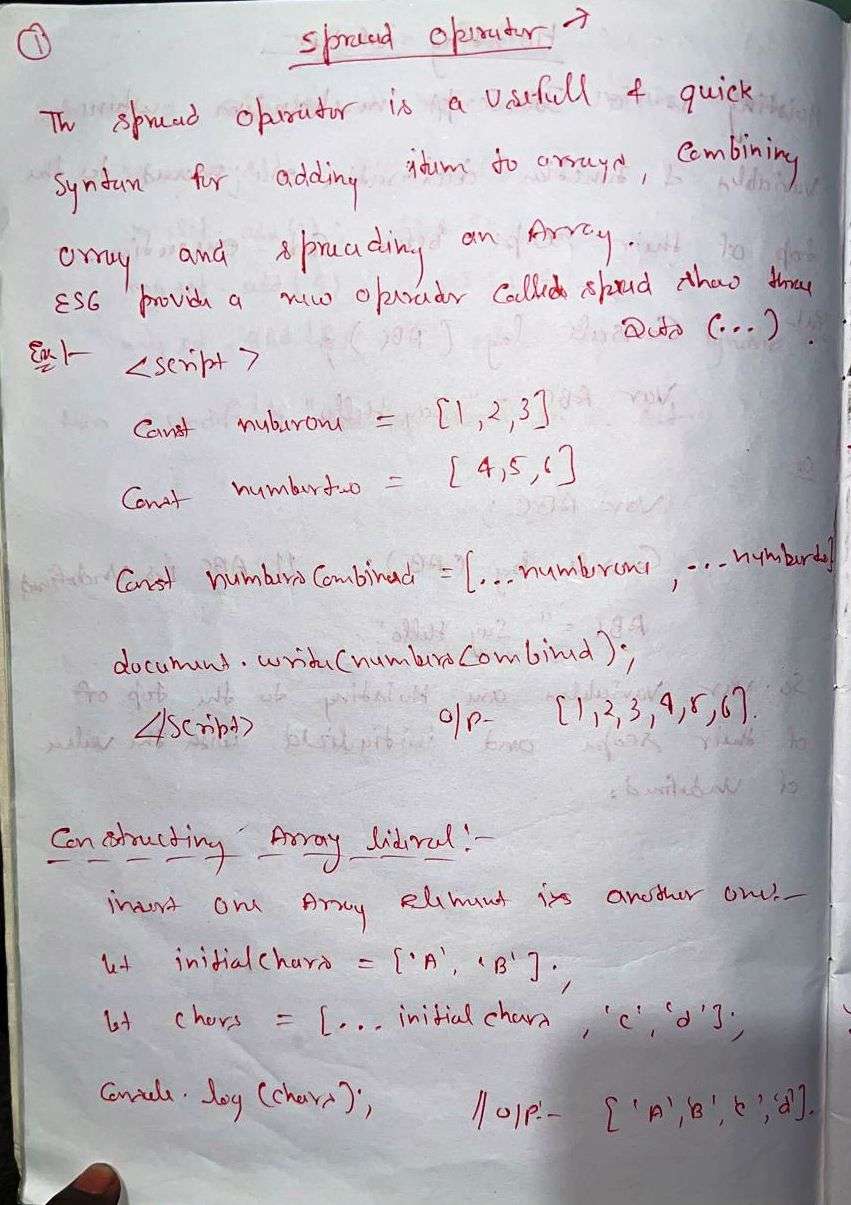 1
Spread operator →
Th spread operator is a Usefull & quick
Syntax for adding item to arrays, Combining
array and spreading an Array.
ES6 provide a new operator Called spread thao three
Dots (...).
Ex:-
<script>
Const nuberone = [1,2,3]
Const numbertwo = [4,5,6]
Const numbersCombined = [...numberone, ...numbertwo]
document.write(numbersCombined);
</script> O/P- [1,2,3,4,5,6].
Constructing Array literal:-
insert one Array element in another one:-
let initialchars = ['A', 'B'];
let chars = [...initialchars, 'c', 'd'];
Console.log(chars); //O/P:- ['A','B','c','d'].